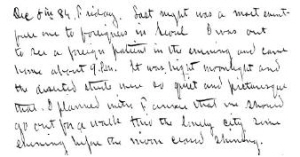 Dec 5th 84. Friday. Last night was a most
to foreigners in Seoul. I was out
to see a foreign patient in the evening and came
home about 9. P.m. It was bright moonlight and
the deserted streets were so quiet and picturesque
that I planned with F. that we should
go out for a walk thru the lonely city some
evening before the moon ceased shining.